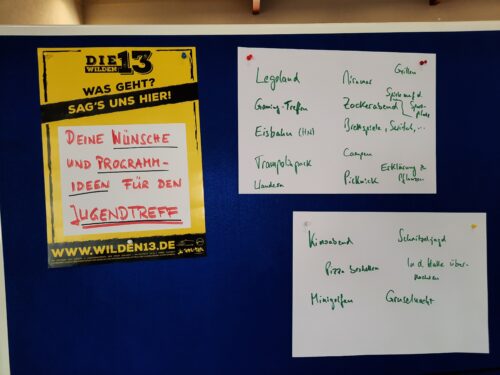 DIE 13
WILDEN
WAS GEHT?
SAG'S UNS HIER!
DEINE WÜNSCHE
UND PROGRAMM-
IDEEN FÜR DEN
JUGENDTREFF
WWW.WILDEN13.DE
Legoland
Gaming-Treffen
Eisbahn (HN)
Trampolinpark
Wandern
Grillen
Spiele auf d.
Zockerabend
Brettspiele, Switch, ...
Campen
Picknick
Erklärung zu
Pflanzen
Kinoabend
Schnitzeljagd
Pizza bestellen
In d. Halle über-
nachten
Minigolfen
Gruselnacht